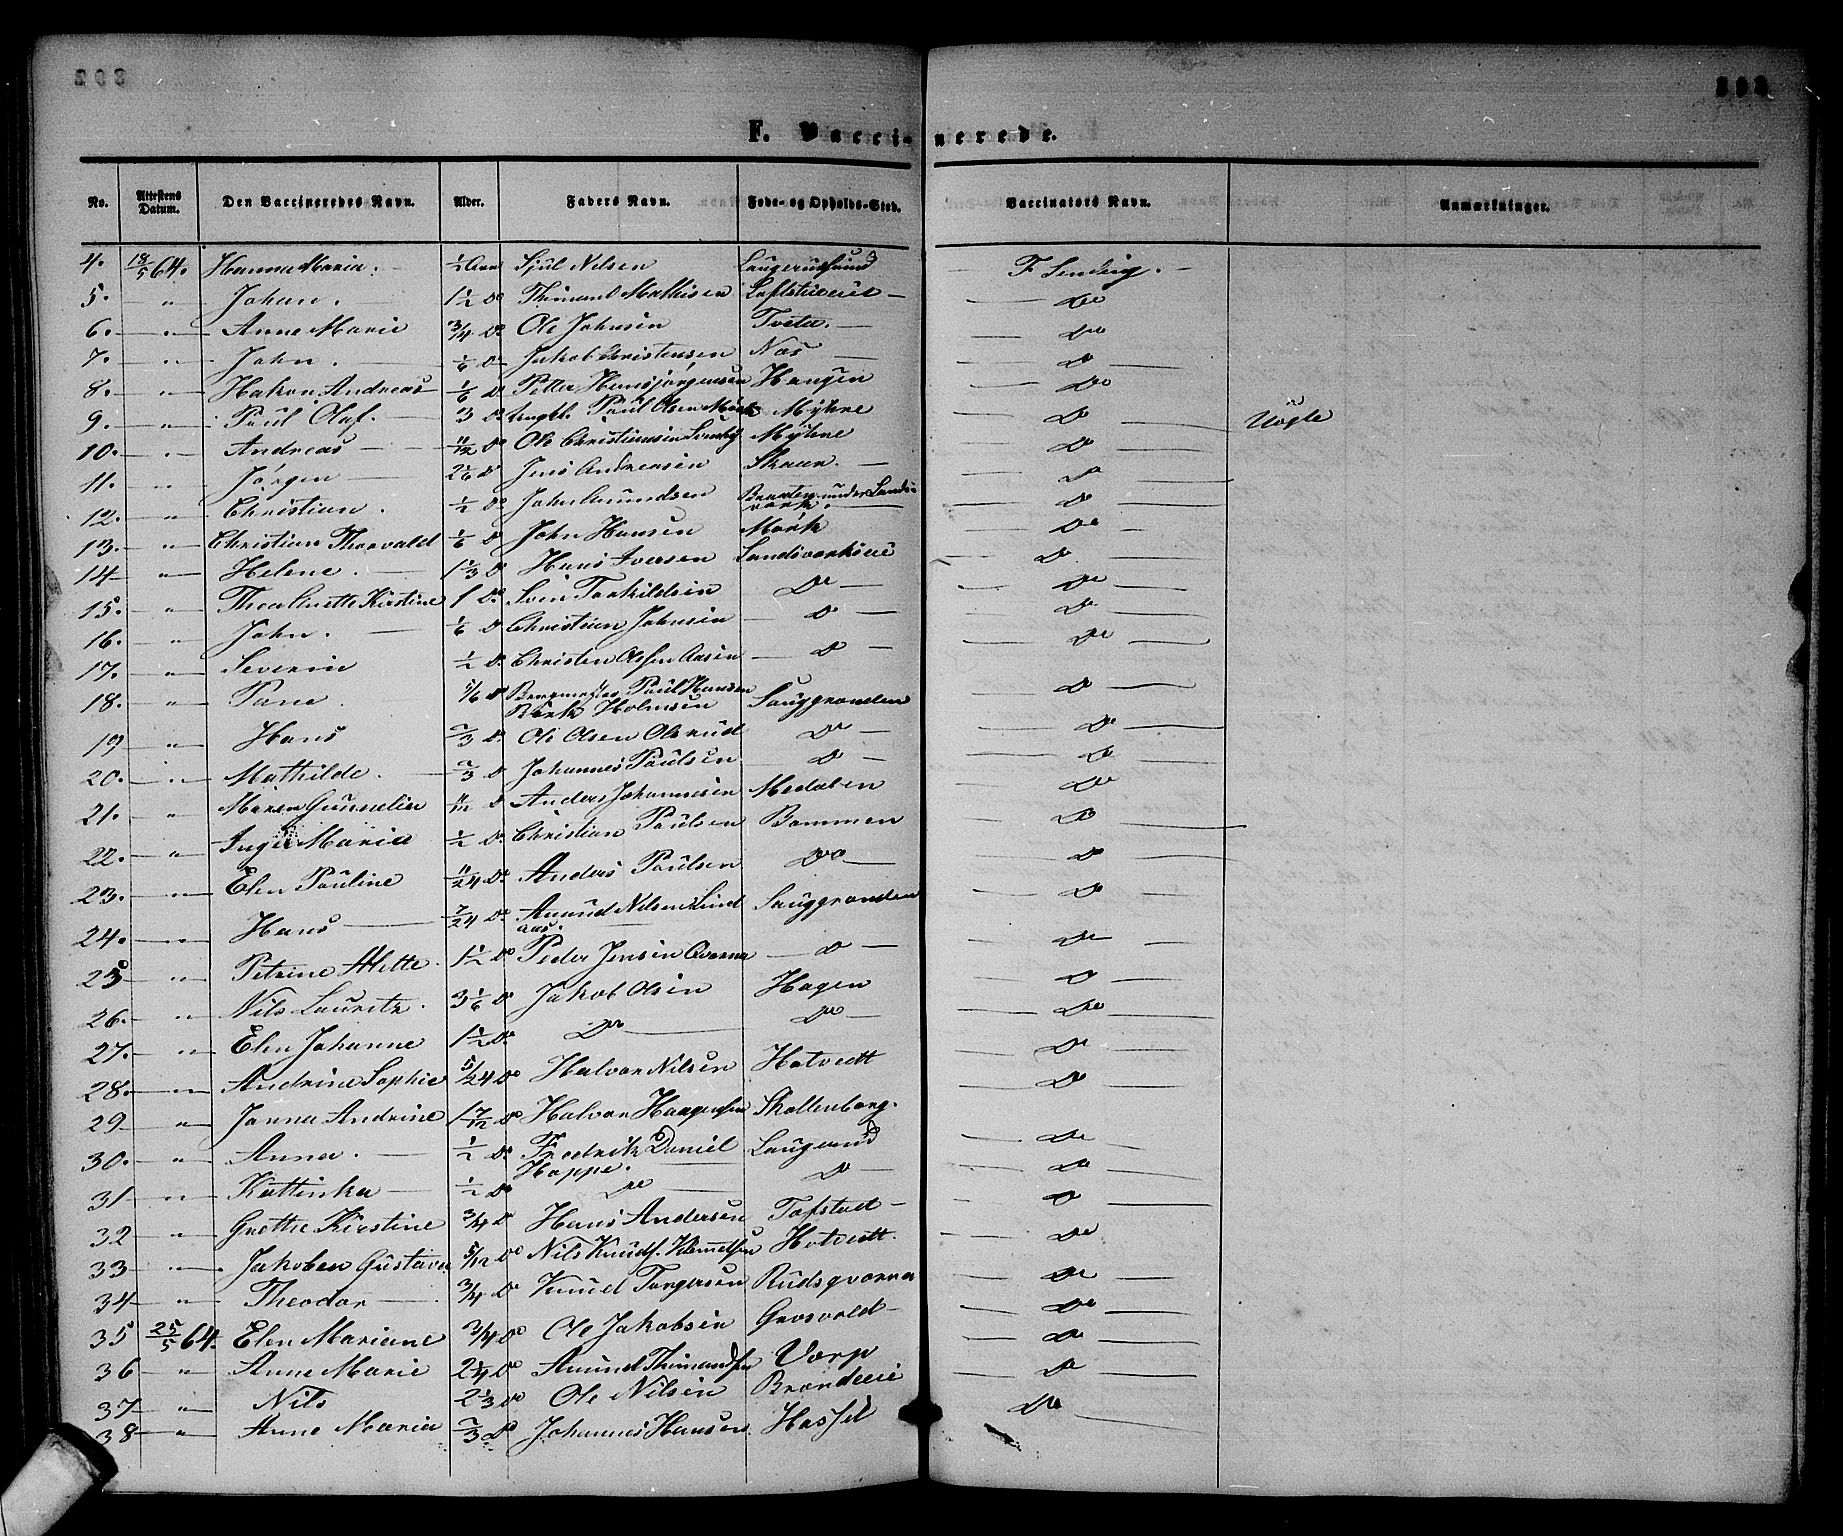 303
F. Vaccinerede.
No. Attestens Datum. Den Vaccineredes Navn. Alder. Faders Navn. Føde- og Opholds-Sted. Vaccinators Navn. Anmærkninger.
4. 18/5 64. Hanna Maria. 1/2 Aar Sjul Nilsen
5. " Johan. 1 1/2 Do Thimand Mathisen Do
6. " Anne Marie 3/4 Do Ole Johnsen Tveta. Do
7. " John. 1/6 Do Jakob Christensen Næs Do
8. " Hakon Andreas 1/6 Do Petter Hansjørgensen Haugen Do
9. " Paul Oluf. 3 Do Paul Olsen Myhre Do Uægte
10. " Andreas 11/12 Do Ole Christiansen Myhre Do
11. " Jørgen 2 1/6 Do Jens Andreasen Skaar. Do
12. " Christian. 1/2 Do John Amundsen Braaten under Do
13. " Christian Thorvald 1/6 Do John Hansen Mørk Do
14 " Helene. 1 1/3 Do Hans Iversen Do
15. " Thea Anette Kirstine 1 Do Sven Torkildsen Do Do
16. " John. 1/6 Do Christian Johnsen Do Do
17. " Severin 1/2 Do Christen Olssen Aasen Do Do
18. " 5/6 Do Paul Hansen Børk Holmsen Sauggranden Do
19 " Hans 2/3 Do Ole Olsen Olsrud Do Do
20. " Mathilde. 2/3 Do Johannes Paulsen Do Do
21. " Maren Gunnelia 11/12 Do Anders Johannesen Medalen Do
22. " Inger Maria 1/2 Do Christian Paulsen Bommen Do
23. " Elen Pauline 11/24 Do Anders Paulsen Do Do
24. " Hans 7/24 Do Amund Nilsen Lindaas. Sauggranden Do
25 " Petrine Mette. 1 1/2 Do Peder Jensen Do Do
26. " Nils Lauritz. 3 1/6 Do Jakob Olsen Hagen Do
27. " Elen Johanne 1 1/2 Do Do Do Do
28. " Andrine Sophie 5/24 Do Halvor Nilsen Hotvedt Do
29 " Janna Andrine 1 7/12 Do Halvor Haagensen Skollenborg. Do
30. " Anna. 1/2 Do Fredrik Daniel Hoppe. Laugerud Do
31 " Kattinka 1/2 Do Do Do Do
32 " Grethe Kirstine 3/4 Do Hans Andersen Tofstad Do
33 " Jakoben Gustava 5/12 Do Nils Knuds. Klemetsen Hotvedt. Do
34 " Theodor 3/4 Do Knud Torgersen Rudsqværna Do
35 25/5 64. Elen Mariane 3/4 Do Ole Jakobsen Grosvold Do
36 " Anne Marie 2 1/4 Do Amund Thimandsen Værp Do
37 " Nils 2 1/3 Do Ole Nilsen Do
38 " Anne Maria 2/3 Do Johannes Hansen Hassel Do